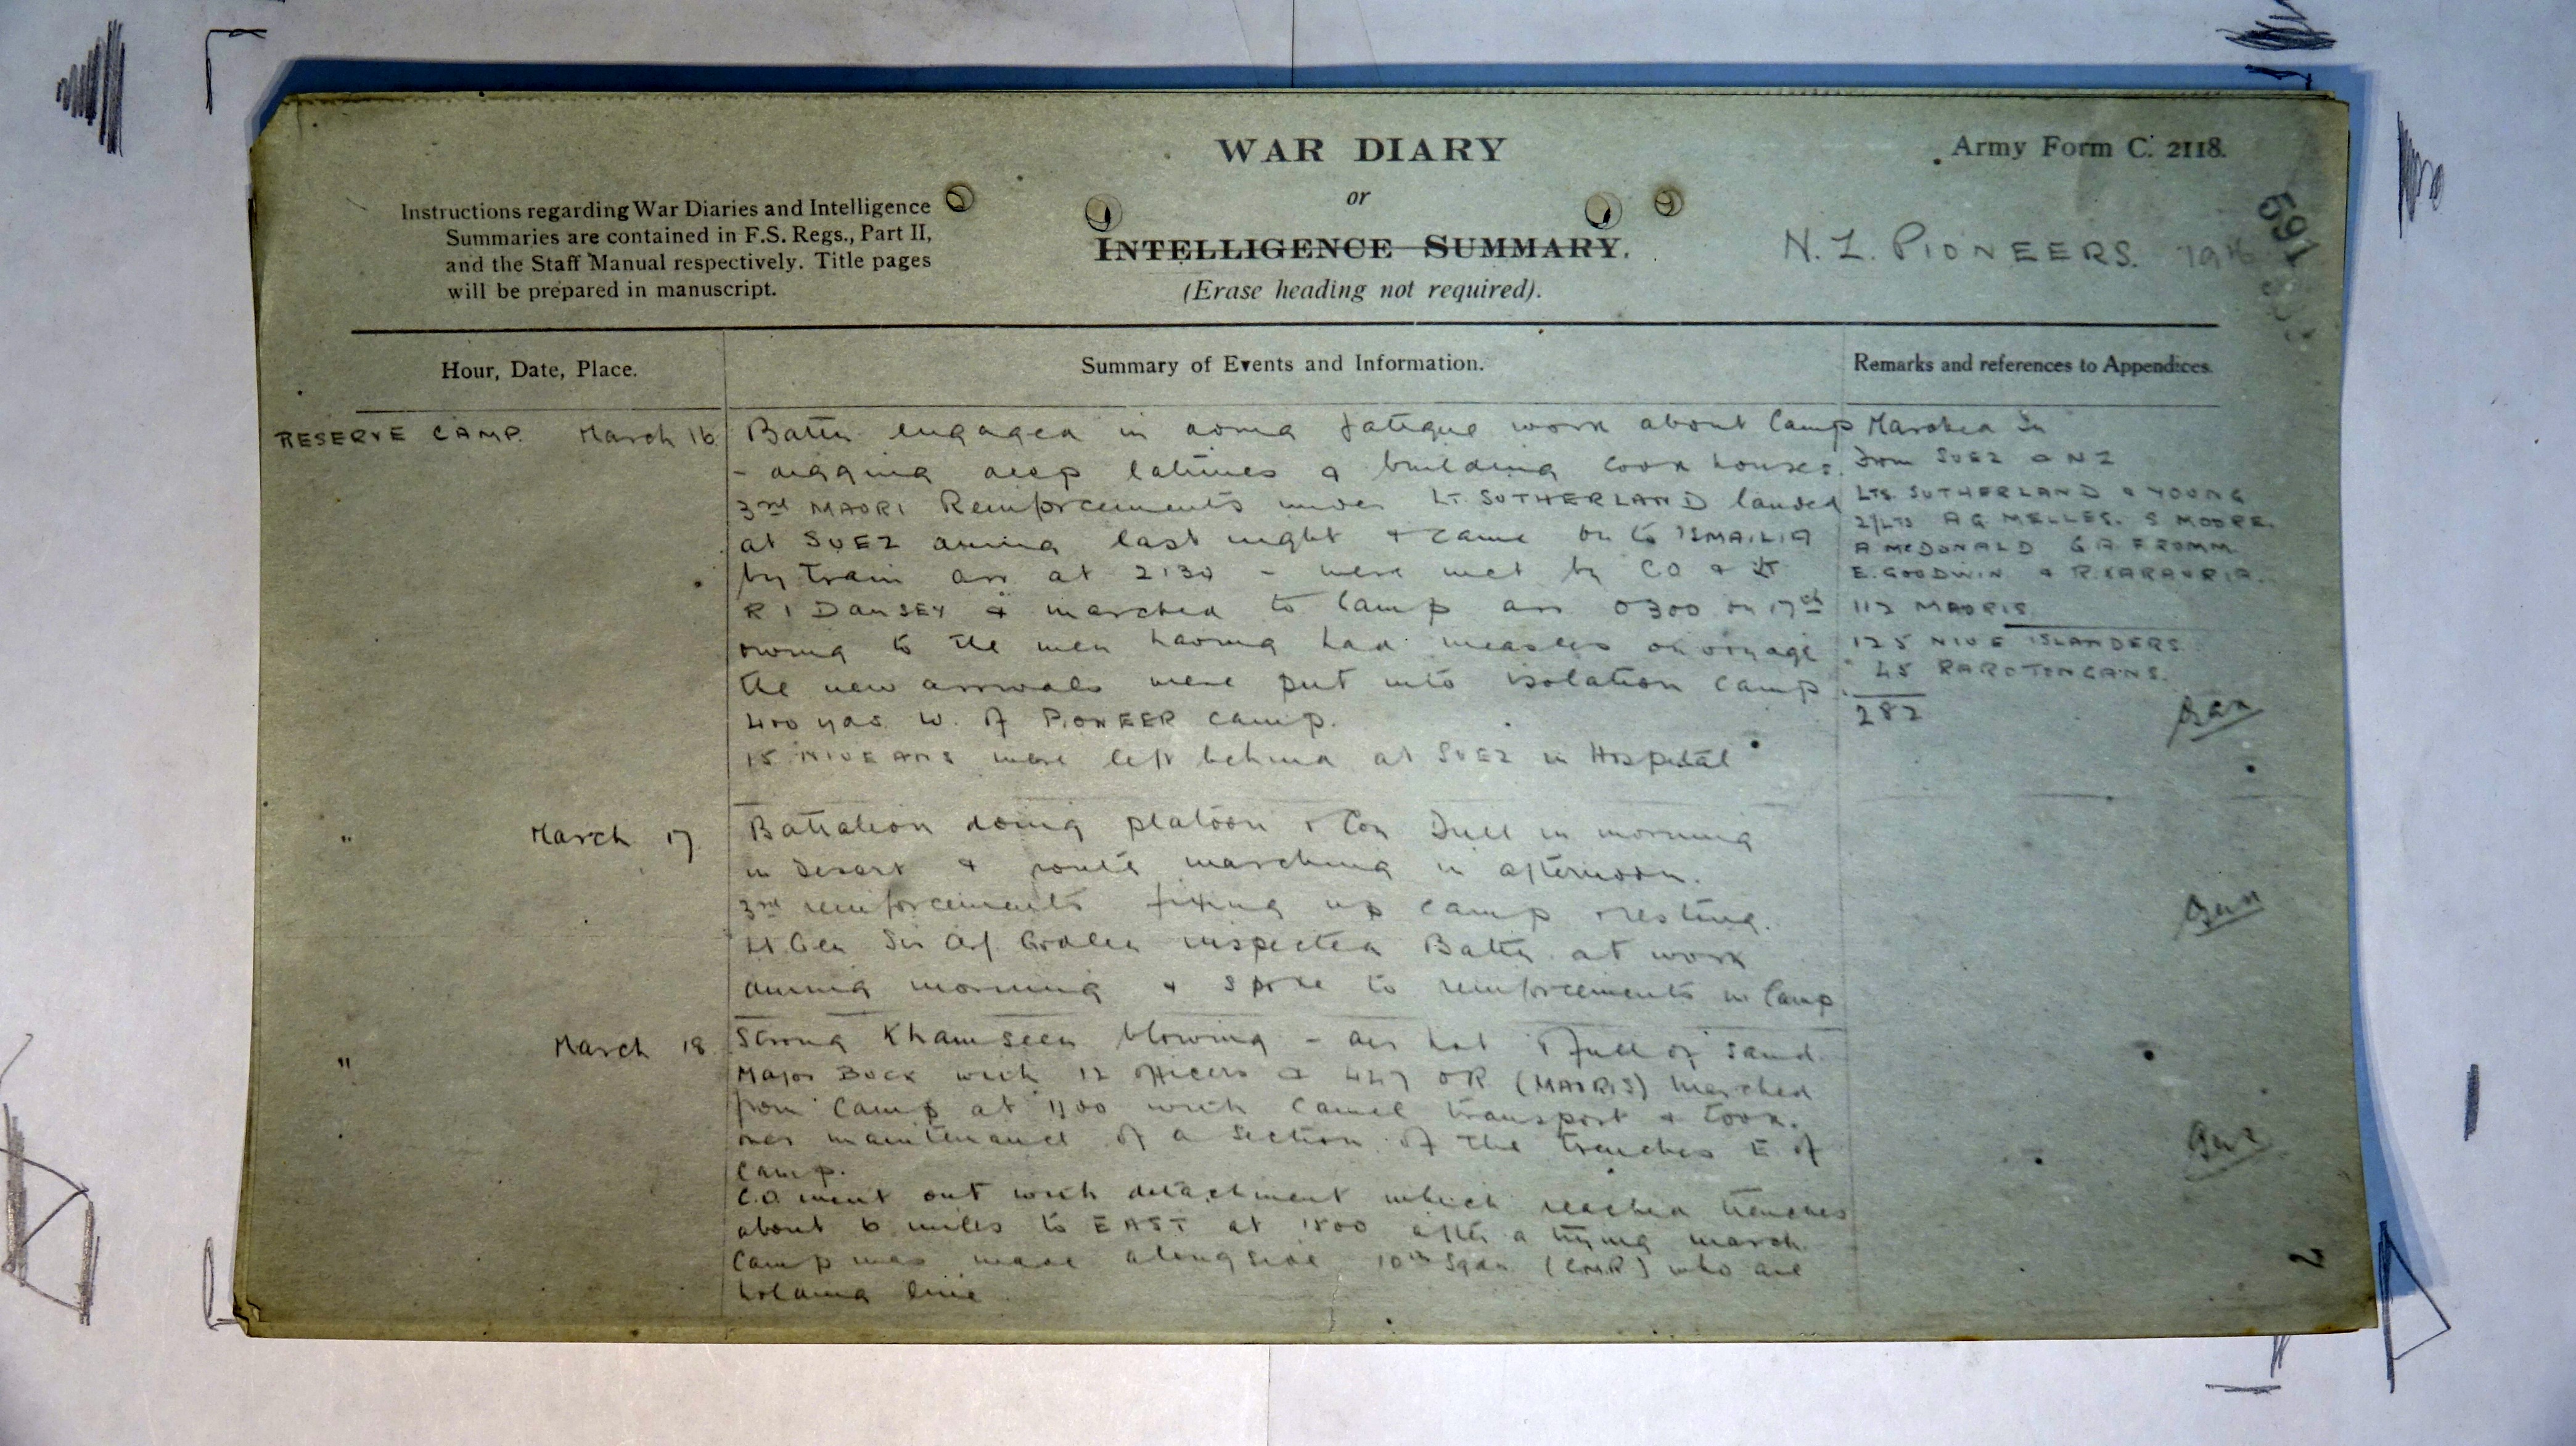 WAR DIARY
or
INTELLIGENCE SUMMARY.
(Erase heading not required).
Army Form C. 2118.
Instructions regarding War Diaries and Intelligence
Summaries are contained in F.S. Regs., Part II,
and the Staff Manual respectively. Title pages
will be prepared in manuscript.
N.Z. PIONEERS. 1916
591
Hour, Date, Place.
Summary of Events and Information.
Remarks and references to Appendices.
RESERVE CAMP. March 16
Battn engaged in doing fatigue work about Camp
- digging deep latrines & building cook houses.
3rd MAORI Reinforcements under LT. SUTHERLAND landed
at SUEZ during last night & came on to ISMAILIA
by train arr at 2.30 - were met by CO & Lt
R I DANSEY & marched to Camp arr 0300 on 17th
owing to the men having had measles on voyage
the new arrivals were put into isolation camp
400 yds W. of PIONEER camp.
15 NIUEANS were left behind at SUEZ in Hospital
Marched in
from SUEZ & NZ
LTS. SUTHERLAND & YOUNG
2/LTS A G MELLES. S MOORE.
A McDONALD G A FROMM
E. GOODWIN & R. KARAURIA.
112 MAORIS
125 NIUE ISLANDERS
45 RAROTONGANS.
282
" March 17
Battalion doing platoon & Coy Drill in morning
in Desert & route marching in afternoon.
3rd reinforcements fixing up camp & resting.
Lt. Gen Sir Alex. Godley inspected Battn at work
during morning & spoke to reinforcements in Camp
" March 18
Strong Khamseen blowing - air hot & full of sand.
Major BUCK with 12 officers & 427 OR (MAORIS) marched
from Camp at 1100 with Camel transport & took
over maintenance of a section of the trenches E of
Camp.
C.O went out with detachment which reached trenches
about 6 miles to EAST at 1500 after a trying march.
Camp was made alongside 10th Sqdn (CMR) who are
holding line
2